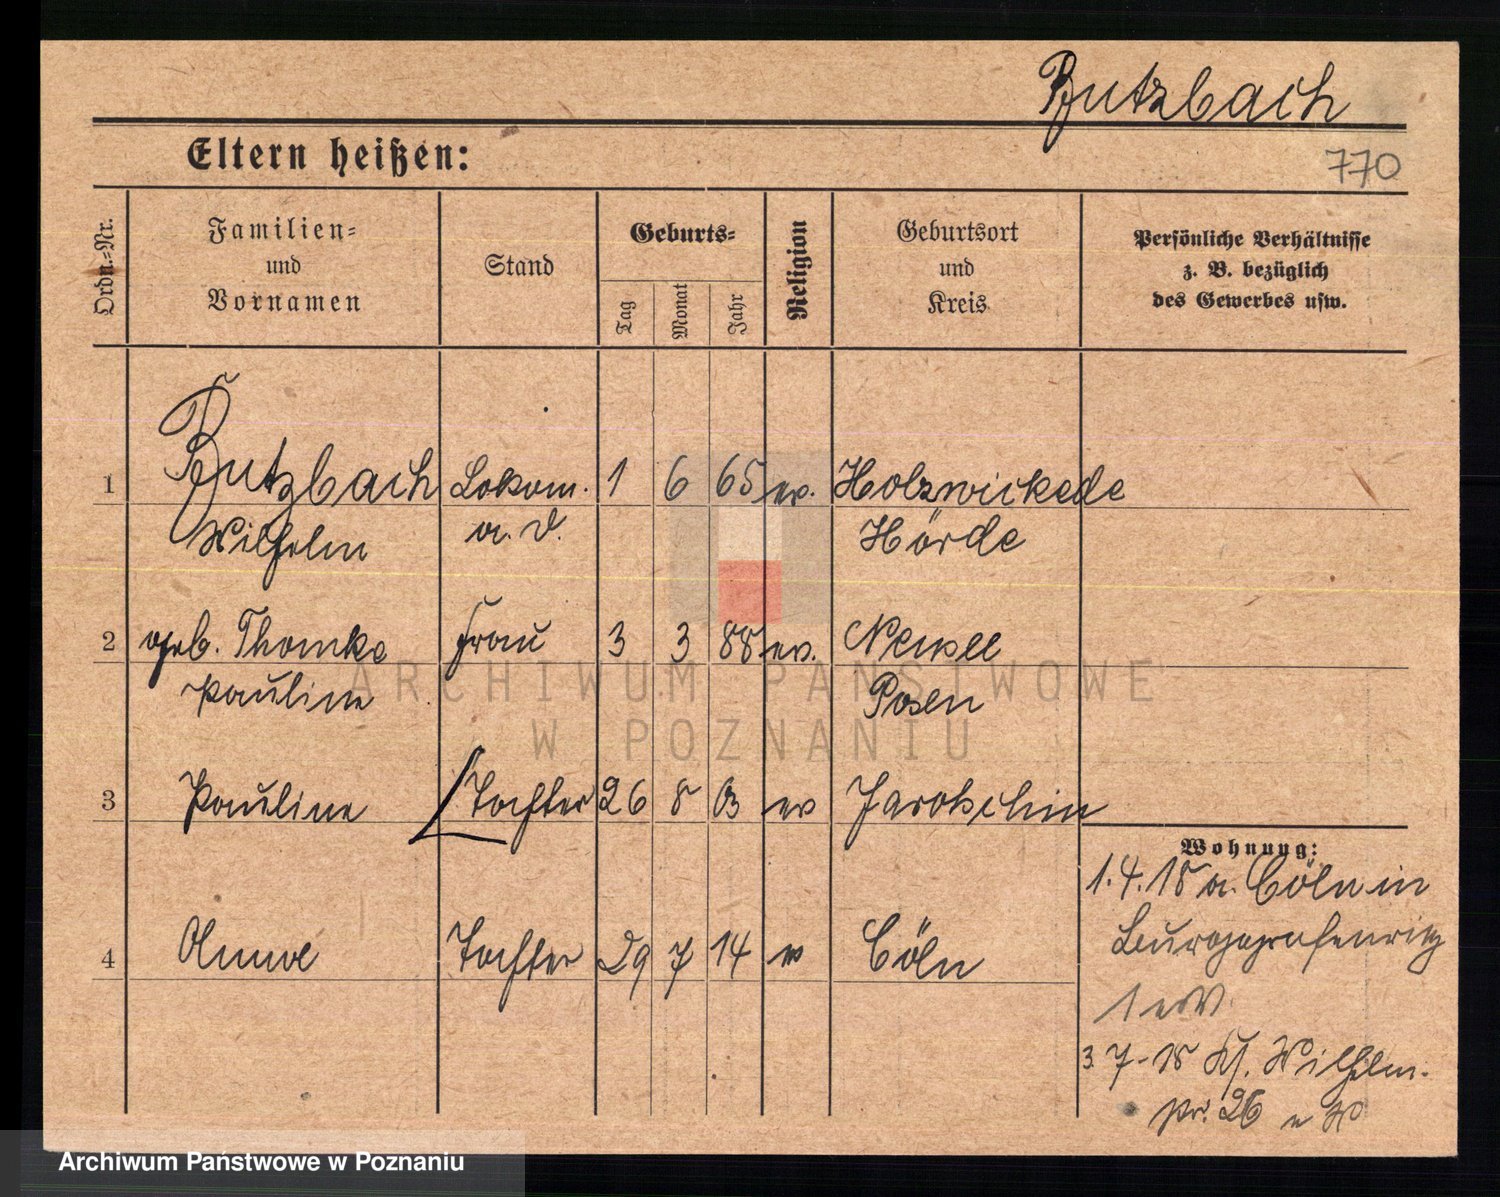 Butzbach
Eltern heißen:
770
Ordn.-Nr.
Familien-
und
Vornamen
Stand
Geburts-
Tag
Monat
Jahr
Religion
Geburtsort
und
Kreis
Persönliche Verhältnisse
z. B. bezüglich
des Gewerbes usw.
1 Butzbach Lokom. 1 6 65 ev. Holzwickede
Wilhelm a. D. Hörde
2 geb. Thomke Frau 3 3 88 ev.
Pauline Posen
3 Pauline Tochter 26 8 03 ev Jarotschin
Wohnung:
1.4.18 a. Cöln in
4 Tochter 29 7 14 ev Cöln
3.7-18 Wilhelm.
26
ARCHIWUM PAŃSTWOWE
W POZNANIU
Archiwum Państwowe w Poznaniu